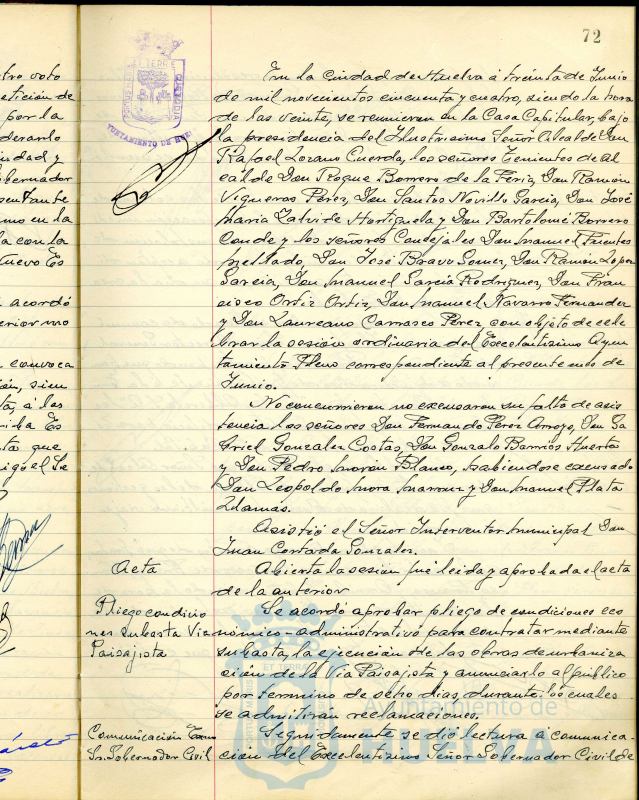 72
tro voto
etición de
por la
derarlo
iudad y
obernador
sentante
mo en la
la con la
uevo Es
acordó
terior mo
convoca
ión, sien
ta, á las
riba Es
ta que
iguel Se
En la Ciudad de Huelva á treinta de Junio
de mil novecientos cincuenta y cuatro, siendo la hora
de las veinte, se reunieron en la Casa Capitular, bajo
la presidencia del Ilustrisimo Señor Alcalde Don
Rafael Lozano Cuerda, los señores Tenientes de Al
calde Don Roque Borrero de la Feria, Don Ramón
Vigueras Pérez, Don Santos Novillo Garcia, Don José
Maria Zalvide Hortiguela y Don Bartolomé Borrero
Conde y los señores Concejales Don Manuel Fuentes
Mellado, Don José Bravo Gomez, Don Ramón Lopez
Garcia, Don Manuel Garcia Rodriguez, Don Fran
cisco Ortiz Ortiz, Don Manuel Navarro Fernandez
y Don Laureano Carrasco Pérez, con objeto de cele
brar la sesión ordinaria del Excelentisimo Ayun
tamiento Pleno correspondiente al presente mes de
Junio.
No concurrieron no excusaron su falta de asis
tencia los señores Don Fernando Pérez Arroyo, Don Ga
briel Gonzalez Costas, Don Gonzalo Barrios Huerta
y Don Pedro Morón Blanco, habiendose excusado
Don Leopoldo Mora Marrour y Don Manuel Plata
Llamas.
Asistió el Señor Interventor municipal Don
Juan Cortada Gonzalez.
Acta
Abierta la sesión fué leida y aprobada el acta
de la anterior
Pliego condicio
nes subasta Via
Paisajista
Se acordó aprobar pliego de condiciones eco
nómico-administrativo para contratar mediante
subasta, la ejecución de las obras de urbaniza
ción de la Via Paisajista y anunciarlo al público
por termino de ocho dias, durante los cuales
se admitiran reclamaciones.
Comunicación Excmo
Sr. Gobernador Civil
Seguidamente se dió lectura á comunica-
ción del Excelentisimo Señor Gobernador Civil de
Ayuntamiento de
HUELVA